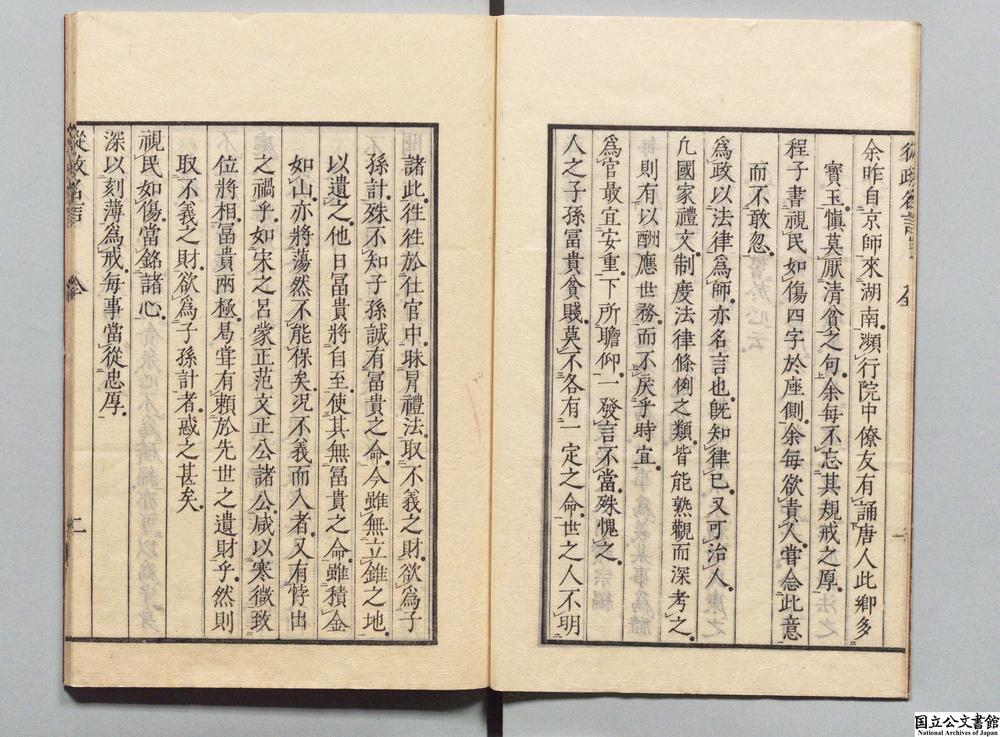 余昨自京師來湖南瀕行院中僚友有誦唐人此鄉多
寶玉愼莫厭清貧之句余每不忘其規戒之厚
程子書視民如傷四字於座側余每欲責人嘗念此意
而不敢忽
爲政以法律爲師亦名言也旣知律已又可治人
凢國家禮文制度法律條例之類皆能熟觀而深考之
則有以酬應世務而不戾乎時宜
爲官最宜安重下所瞻仰一發言不當殊愧之
人之子孫冨貴貧賤莫不各有一定之命世之人不明
諸此徃徃於仕官中昧冐禮法取不義之財欲爲子
孫計殊不知子孫誠有冨貴之命今雖無立錐之地
以遺之他日冨貴將自至使其無冨貴之命雖積金
如山亦將蕩然不能保矣况不義而入者又有悖出
之禍乎如宋之呂蒙正范文正公諸公咸以寒微致
位將相冨貴兩極曷甞有賴於先世之遺財乎然則
取不義之財欲爲子孫計者惑之甚矣
視民如傷當銘諸心
深以刻薄爲戒每事當從忠厚
從政名言
全
二
国立公文書館
National Archives of Japan